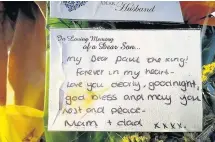 Dear
Husband
In Loving Memory
of a Dear Son...
my Dear Paul the King!
Forever in my heart-
love you dearly, goodnight,
god bless and may you
rest and peace.
Mam + dad xxxx.